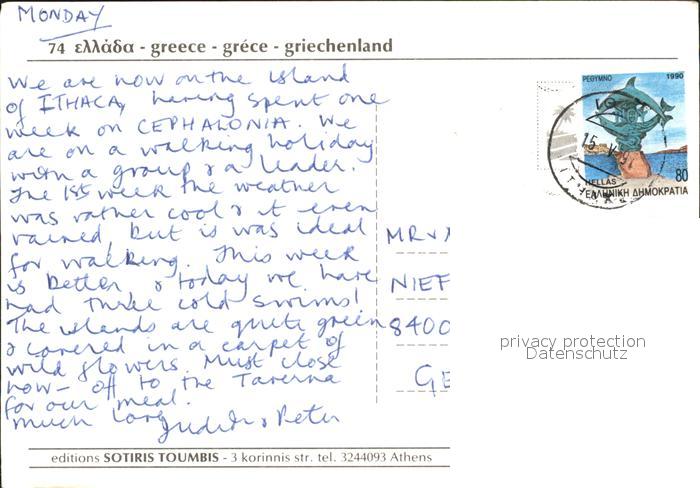 MONDAY
74 ελλάδα - greece - gréce - griechenland
We are now on the island
of ITHACA, having spent one
week on CEPHALONIA. We
are on a walking holiday
with a group & a leader.
The 1st week the weather
was rather cool & it even
rained, but is was ideal
for walking. This week
is better & today we have
had three cold swims!
The islands are quite green
& covered in a carpet of
wild flowers. Must close
now - off to the Taverna
for our meal.
much love
Judith & Peter
ΡΕΘΥΜΝΟ 1990
80
HELLAS
ΕΛΛΗΝΙΚΗ ΔΗΜΟΚΡΑΤΙΑ
15
MR &
NIEF
8400
GE
privacy protection
Datenschutz
editions SOTIRIS TOUMBIS - 3 korinnis str. tel. 3244093 Athens